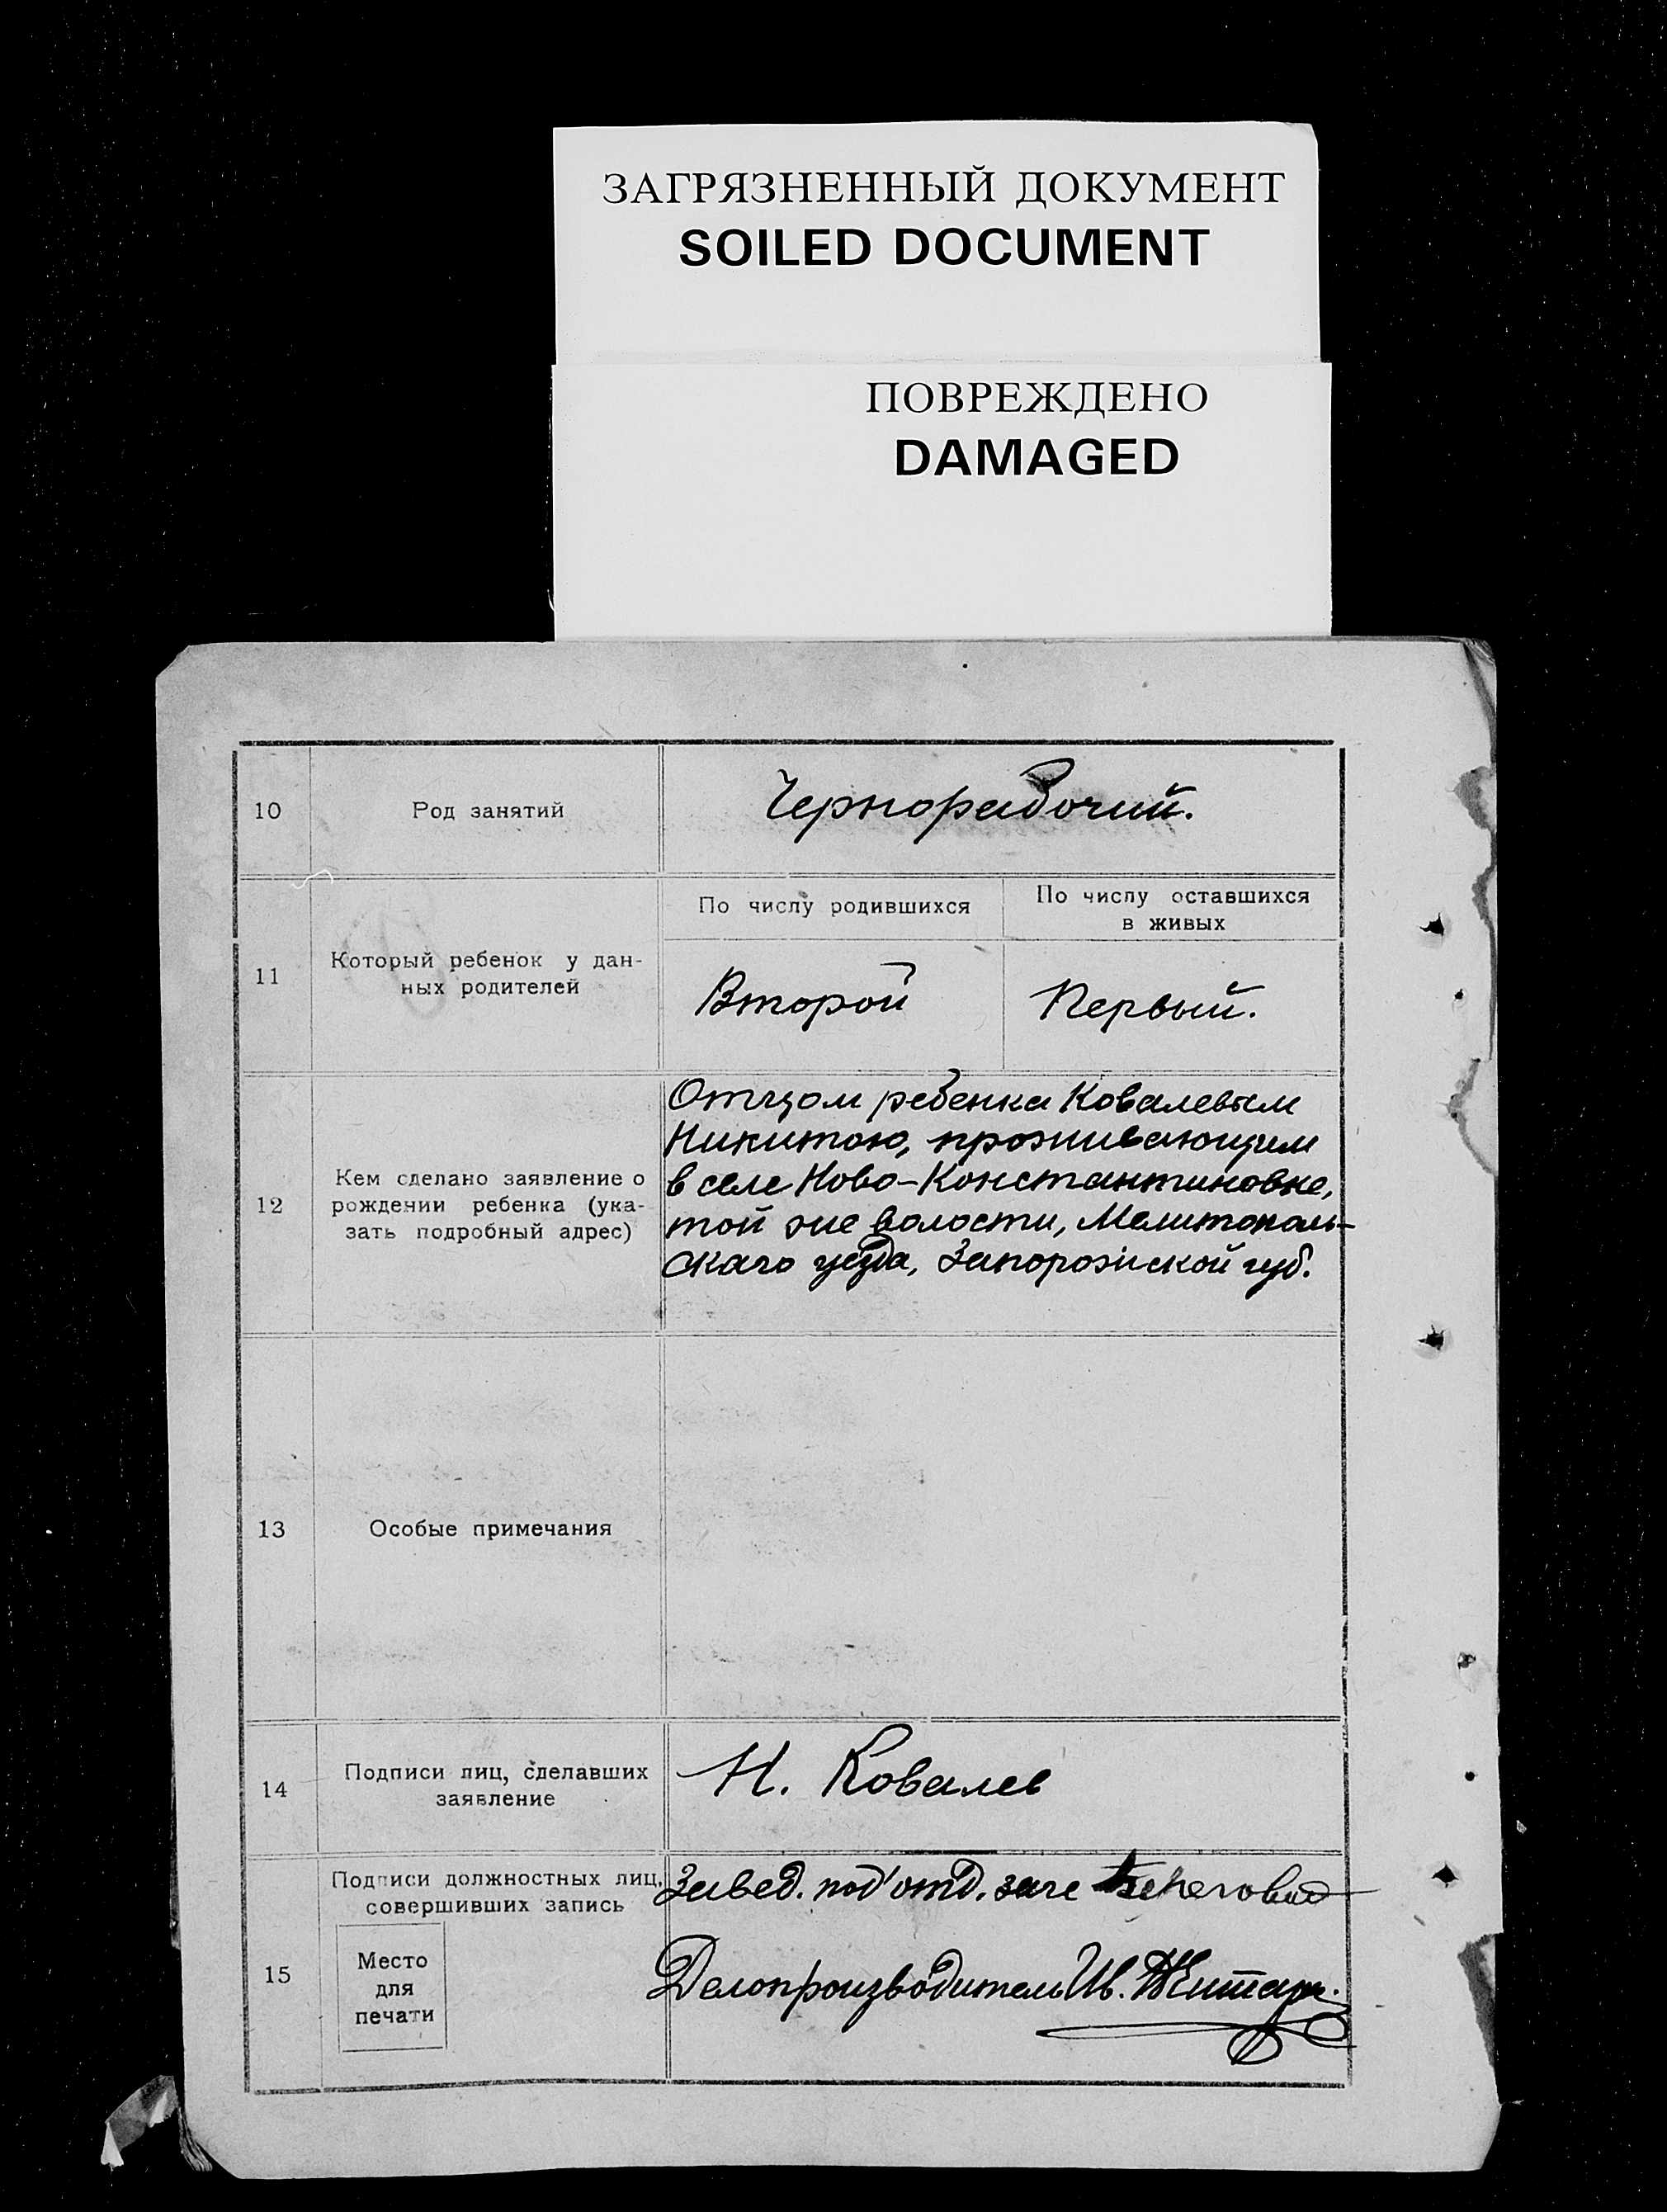 ЗАГРЯЗНЕННЫЙ ДОКУМЕНТ
SOILED DOCUMENT
ПОВРЕЖДЕНО
DAMAGED
10
Род занятий
Чернорабочий.
11
Который ребенок у дан-
ных родителей
По числу родившихся
По числу оставшихся
в живых
Второй
Первый.
12
Кем сделано заявление о
рождении ребенка (ука-
зать подробный адрес)
Отцом ребенка Ковалевым
Никитою, проживающим
в селе Ново-Константиновке,
той же волости, Мелитополь-
скаго уезда, Запорожской губ.
13
Особые примечания
14
Подписи лиц, сделавших
заявление
Н. Ковалев
15
Подписи должностных лиц,
совершивших запись
Место
для
печати
Завед. под'отд. загс
Делопроизводитель Ив.